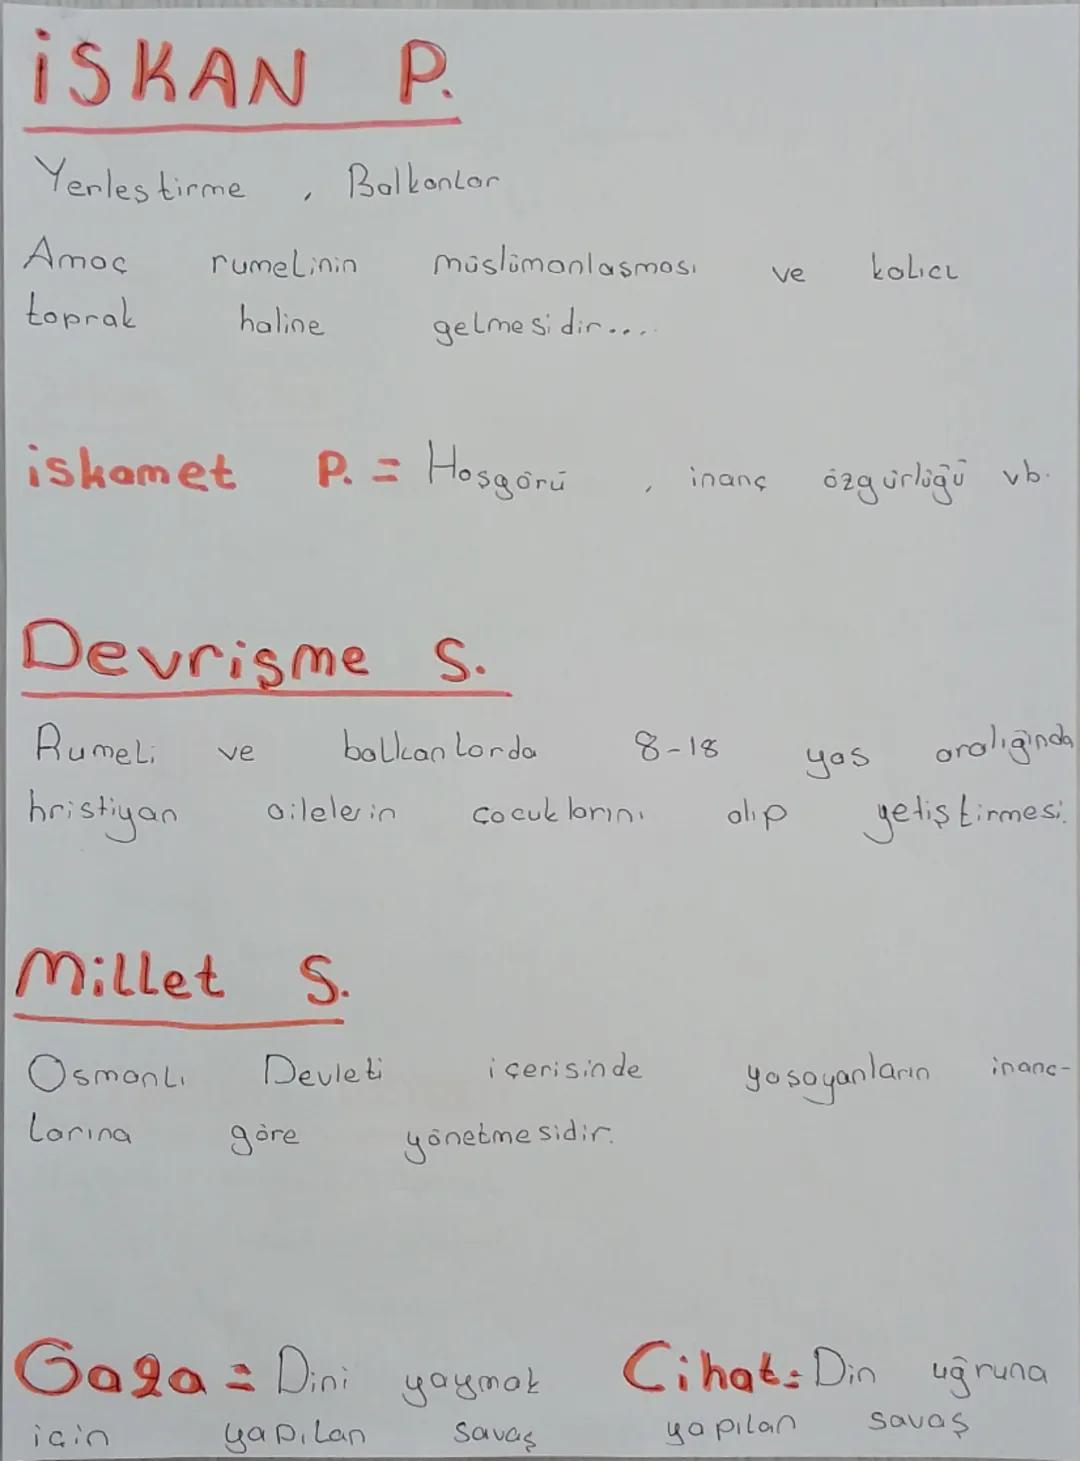 İSKAN P.
Yerleştirme , Balkanlar
Amaç rumelinin müslümanlaşması ve kalıcı
toprak haline gelmesidir....
iskamet P. = Hoşgörü , inanç özgürlüğü vb.
Devrişme S.
Rumeli ve balkanlarda 8-18 yas aralığında
hristiyan ailelerin çocuklarını alıp yetiştirmesi.
Millet S.
Osmanlı Devleti içerisinde yaşayanların inanç-
larına göre yönetmesidir.
Gaza = Dini yaymak
için yapılan savaş
Cihat = Din uğruna
yapılan savaş